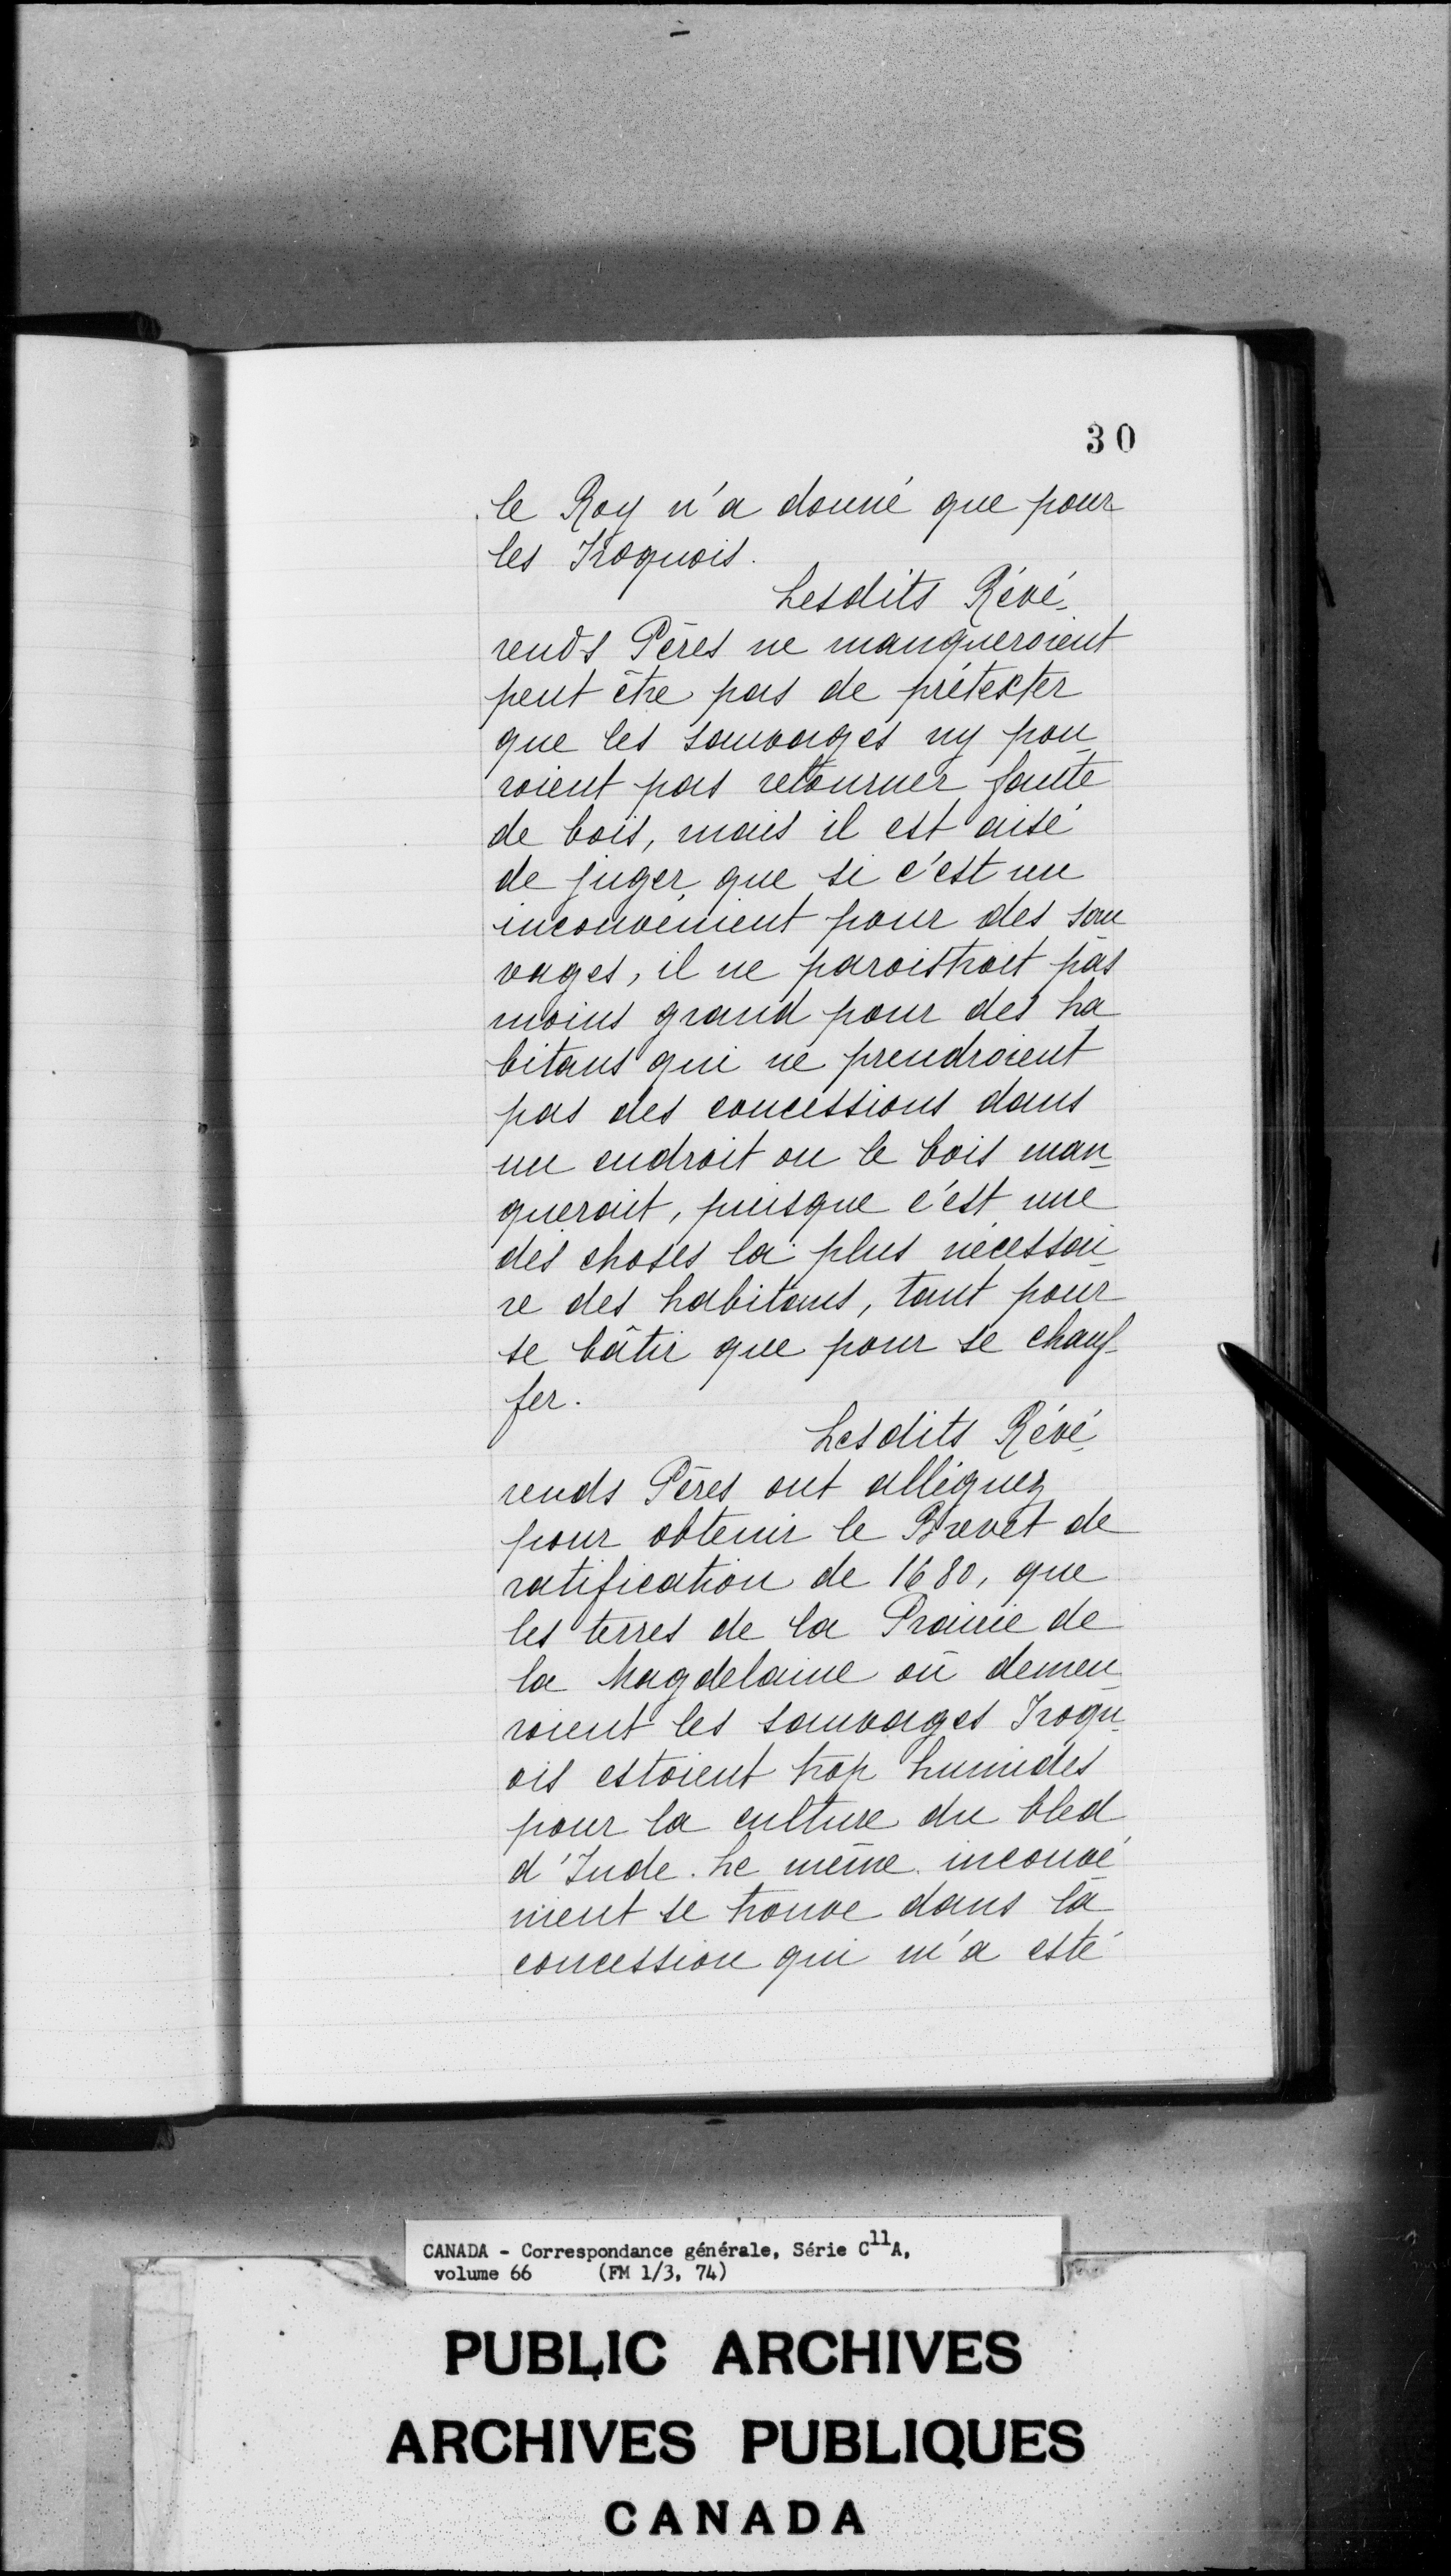 30
le Roy n'a donné que pour
les Iroquois.
Lesdits Révé-
rends Pères ne manqueroient
peut être pas de prétexter
que les sauvages ny pou-
roient pas retourner faute
de bois, mais il est aisé
de juger que si c'est un
inconvénient pour des sau
vages, il ne paroistroit pas
moins grand pour des ha
bitans qui ne prendroient
pas des concessions dans
un endroit ou le bois man-
querait, puisque c'est une
des choses la plus nécessai-
re des habitans, tant pour
se bâtir que pour se chauf-
fer.
Lesdits Révé-
rends Pères ont alléguez
pour obtenir le Brevet de
ratification de 1680, que
les terres de la Prairie de
la Magdelaine où demeu-
roient les sauvages Iroqu-
ois estoient trop humides
pour la culture du bled
d'Inde. Le même inconvé
nient se trouve dans la
concession qui m'a esté
CANADA - Correspondance générale, Série C11A,
volume 66 (FM 1/3, 74)
PUBLIC ARCHIVES
ARCHIVES PUBLIQUES
CANADA